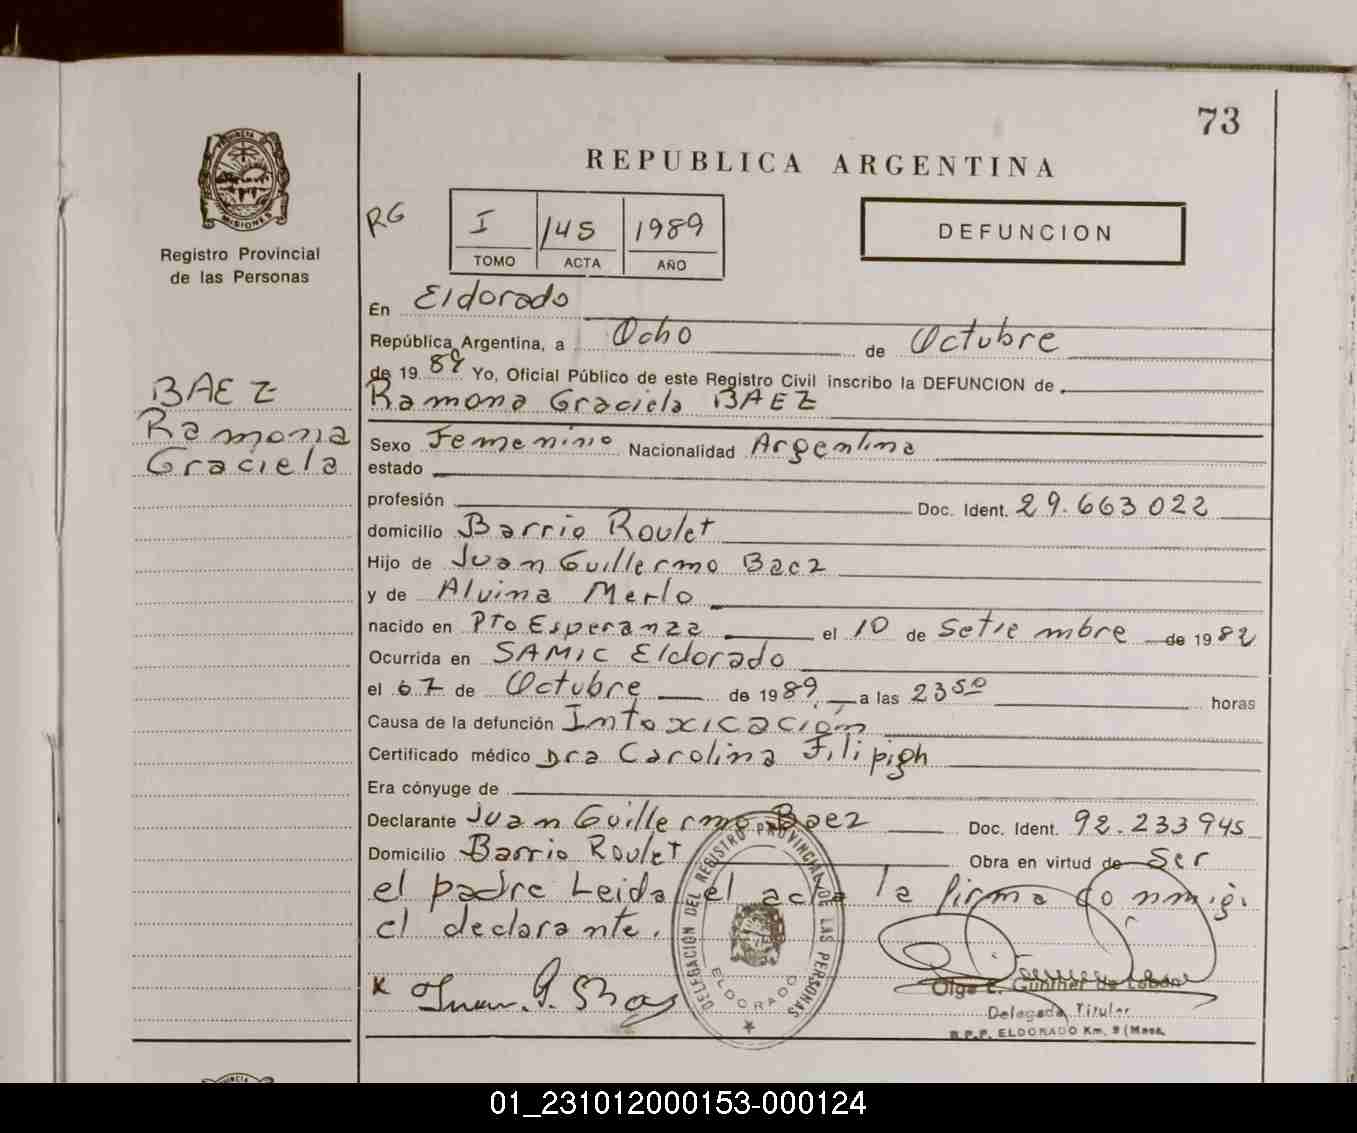 73
REPUBLICA ARGENTINA
PROVINCIA DE
MISIONES
Registro Provincial
de las Personas
RG
I 145 1989
TOMO ACTA AÑO
DEFUNCION
En Eldorado
República Argentina, a Ocho de Octubre
de 1989 Yo, Oficial Público de este Registro Civil inscribo la DEFUNCION de
Ramona Graciela BAEZ
BAEZ
Ramona
Graciela
Sexo Femenino Nacionalidad Argentina
estado
profesión Doc. Ident. 29.663022
domicilio Barrio Roulet
Hijo de Juan Guillermo Baez
y de Alvina Merlo
nacido en Pto Esperanza el 10 de Setiembre de 1982
Ocurrida en SAMIC Eldorado
el 07 de Octubre de 1989, a las 23 50 horas
Causa de la defunción Intoxicación
Certificado médico Dra Carolina Filipigh
Era cónyuge de
Declarante Juan Guillermo Baez Doc. Ident. 92.233945
Domicilio Barrio Roulet Obra en virtud de Ser
el padre Leida el acta la firma conmig.
el declarante.
x
DELEGACIÓN DEL REGISTRO PROVINCIAL DE LAS PERSONAS
ELDORADO
Olga E. Günther de Lobón
Delegada Titular
R.P.P. ELDORADO Km. 9 (Mnes.
01_231012000153-000124